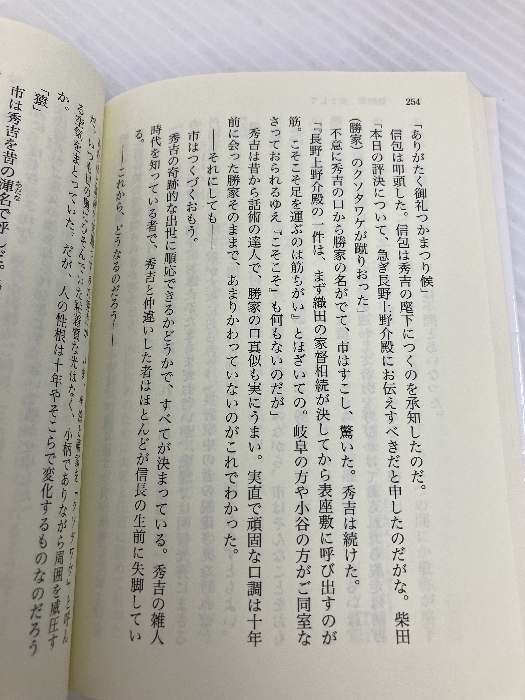 254
「ありがたく御礼つかまつり候」
信包は叩頭した。信包は秀吉の麾下につくのを承知したのだ。
「本日の評決について、急ぎ長野上野介殿にお伝えすべきだと申したのだがな。柴田
(勝家)のクソタワケが蹴りおった」
不意に秀吉の口から勝家の名がでて、市はすこし、驚いた。秀吉は続けた。
「『長野上野介殿の一件は、まず織田の家督相続が決してから表座敷に呼び出すのが
筋。こそこそ足を運ぶのは筋ちがい』とほざいての。岐阜の方や小谷の方がご同室な
さっておられるゆえ『こそこそ』も何もないのだが」
秀吉は昔から話術の達人で、勝家の口真似も実にうまい。実直で頑固な口調は十年
前に会った勝家そのままで、あまりかわっていないのがこれでわかった。
――それにしても――
市はつくづくおもう。
秀吉の奇跡的な出世に順応できるかどうかで、すべてが決まっている。秀吉の雑人
時代を知っている者で、秀吉と仲違いした者はほとんどが信長の生前に失脚してい
る。
――これから、どうなるのだろう――
る空気をまとっていた。だが、人の性根は十年やそこらで変化するものなのだろう
か。
「猿」
市は秀吉を昔の渾名で呼んだ。